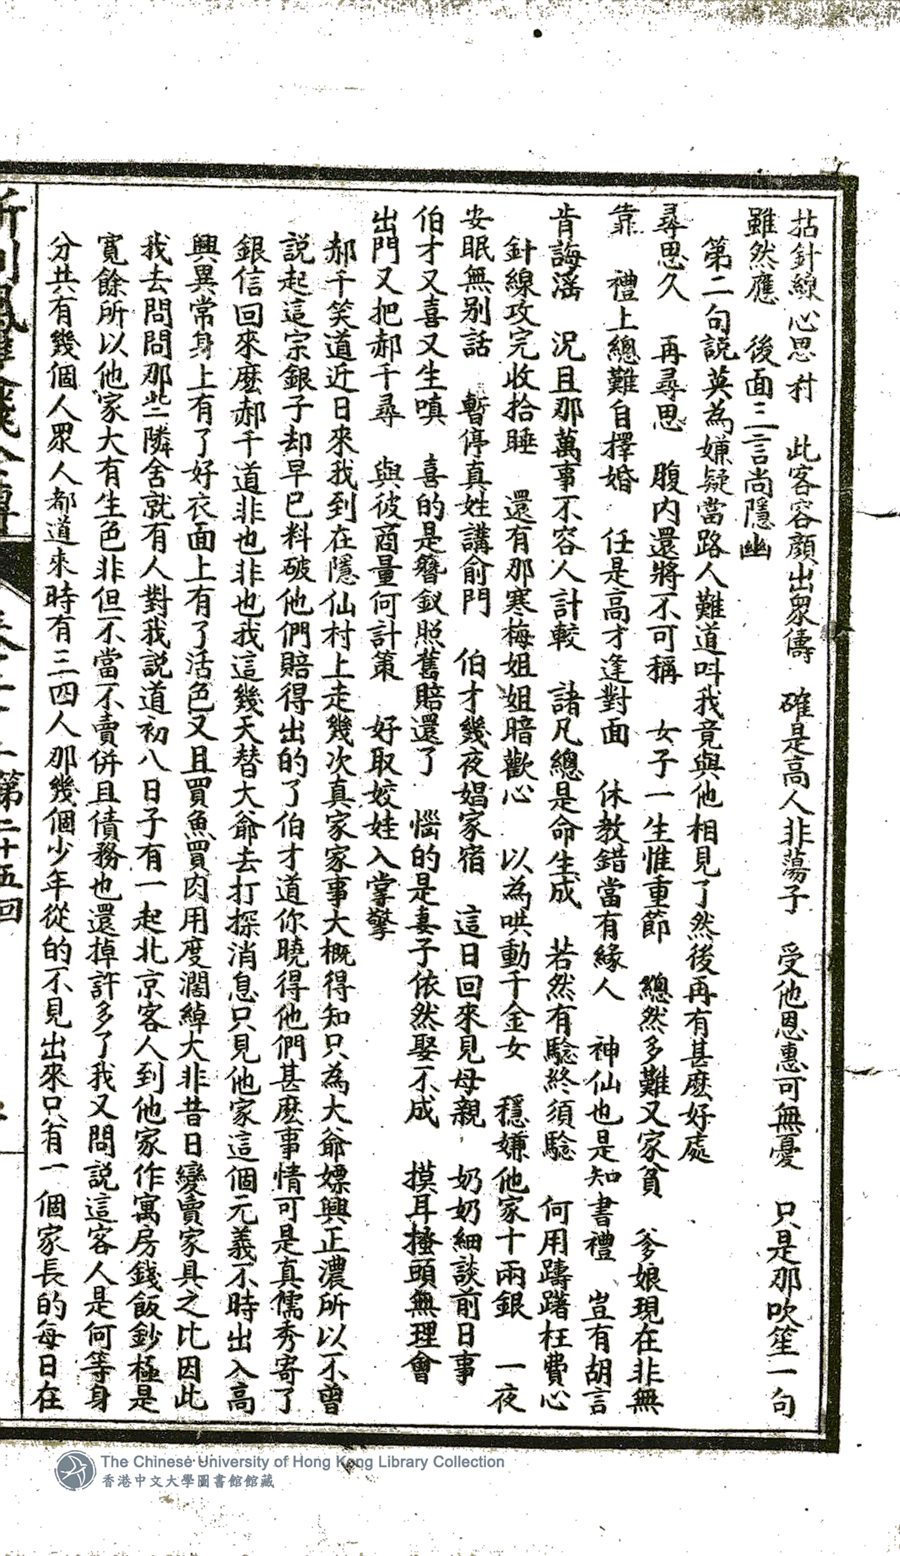 拈針線心思忖　此客容顏出眾儔　確是高人非蕩子　受他恩惠可無憂　只是那吹笙一句
雖然應　後面三言尚隱幽
第二句說英為嫌疑當路人難道叫我竟與他相見了然後再有甚麽好處
尋思久　再尋思　腹內還將不可稱　女子一生惟重節　總然多難又家貧　爹娘現在非無
靠　禮上總難自擇婚　任是高才逢對面　休教錯當有緣人　神仙也是知書禮　豈有胡言
肯誨滛　況且那萬事不容人計較　諸凡總是命生成　若然有驗終須驗　何用躊躇枉費心
針線攻完收拾睡　還有那寒梅姐姐暗歡心　以為哄動千金女　穩嫌他家十兩銀　一夜
安眠無別話　暫停真姓講俞門　伯才幾夜娼家宿　這日回來見母親　奶奶細談前日事
伯才又喜又生嗔　喜的是簪釵照舊賠還了　惱的是妻子依然娶不成　摸耳搔頭無理會
出門又把郝千尋　與彼商量何計策　好取姣娃入掌擎
郝千笑道近日來我到在隱仙村上走幾次真家家事大概得知只為大爺嫖興正濃所以不曾
說起這宗銀子却早已料破他們賠得出的了伯才道你曉得他們甚麽事情可是真儒秀寄了
銀信回來麽郝千道非也非也我這幾天替大爺去打探消息只見他家這個元義不時出入高
興異常身上有了好衣面上有了活色又且買魚買肉用度濶綽大非昔日變賣家具之比因此
我去問問那些隣舍就有人對我說道初八日子有一起北京客人到他家作寓房錢飯鈔極是
寬餘所以他家大有生色非但不當不賣併且債務也還掉許多了我又問說這客人是何等身
分共有幾個人眾人都道來時有三四人那幾個少年從的不見出來只有一個家長的每日在
第二十五回
The Chinese University of Hong Kong Library Collection
香港中文大學圖書館館藏